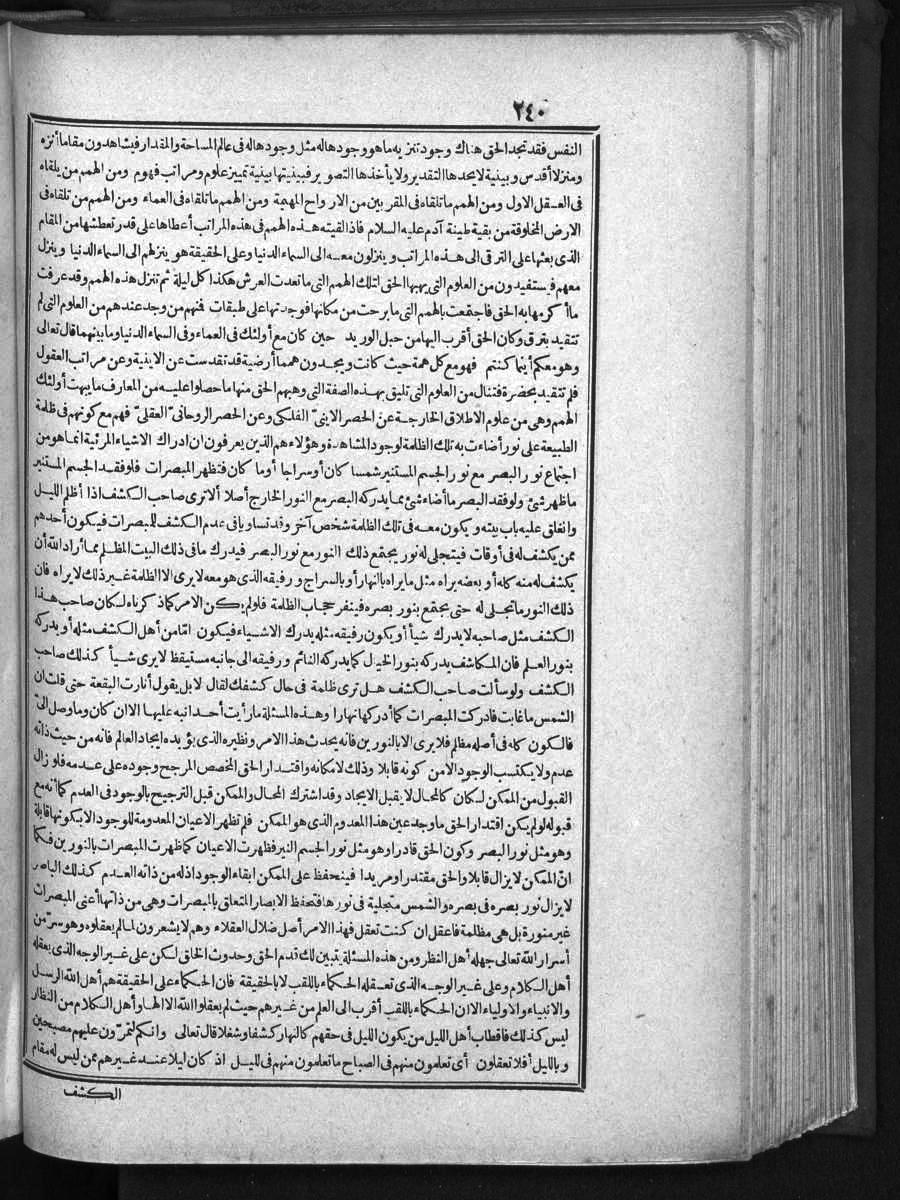 ٢٤٠
النفس فقد تجد الحق هناك وجود تنزيه ماهو وجودها له مثل وجودها له فى عالم المساحة والمقدار فيشاهدون مقاما أنزه
ومنزلا أقدس وبينية لا يحدها التقدير ولا يأخذها التصوير فبينيتها بينية تمييز علوم ومراتب فهوم ومن الهمم من يلقاه
فى العقل الاول ومن الهمم ما تلقاه فى المقربين من الارواح المهيمة ومن الهمم ما تلقاه فى العماء ومن الهمم من تلقاه فى
الارض المخلوقة من بقية طينة آدم عليه السلام فاذا لقيته هذه الهمم فى هذه المراتب أعطاها على قدر تعطشها من المقام
الذى بعثها على الترقى الى هذه المراتب وينزلون معه الى السماء الدنيا وعلى الحقيقة هو ينزلهم الى السماء الدنيا وينزل
معهم فيستفيدون من العلوم التى يهبها الحق لتلك الهمم التى ما تعدت العرش هكذا كل ليلة ثم تنزل هذه الهمم وقد عرفت
ما أكرمها به الحق فاجتمعت بالهمم التى ما برحت من مكانها فوجدتها على طبقات فمنهم من وجد عندهم من العلوم التى لم
تتقيد بترق وكان الحق أقرب اليها من حبل الوريد حين كان مع أولئك فى العماء وفى السماء الدنيا وما بينهما قال تعالى
وهو معكم أينما كنتم فهو مع كل همة حيث كانت ويجدون همما أرضية قد تقدست عن الاينية وعن مراتب العقول
فلم تتقيد بحضرة فتنال من العلوم التى تليق بهذه الصفة التى وهبهم الحق منها ما حصلوا عليه من المعارف ما يبهت أولئك
الهمم وهى من علوم الاطلاق الخارجة عن الحصر الاينىّ الفلكى وعن الحصر الروحانىّ العقلىّ فهم مع كونهم فى ظلمة
الطبيعة على نور أضاءت به تلك الظلمة لوجود المشاهدة وهؤلاء هم الذين يعرفون ان ادراك الاشياء المرئية انما هو من
اجتماع نور البصر مع نور الجسم المستنير شمسا كان أو سراجا أو ما كان فتظهر المبصرات فلو فقد الجسم المستنير
ما ظهر شئ ولو فقد البصر ما أضاء شئ مما يدركه البصر مع النور الخارج أصلا ألا ترى صاحب الكشف اذا أظلم الليل
وانغلق عليه باب بيته ويكون معه فى تلك الظلمة شخص آخر وقد تساويا فى عدم الكشف للمبصرات فيكون أحدهم
ممن يكشف له فى أوقات فيتجلى له نور يجتمع ذلك النور مع نور البصر فيدرك ما فى ذلك البيت المظلم مما أراد الله أن
يكشف له منه كله أو بعضه يراه مثل ما يراه بالنهار أو بالسراج ورفيقه الذى هو معه لا يرى الا الظلمة غير ذلك لا يراه فان
ذلك النور ما تجلى له حتى يجتمع بنور بصره فينفر حجاب الظلمة فلو لم يكن الامر كما ذكرناه لكان صاحب هذا
الكشف مثل صاحبه لا يدرك شيأ أو يكون رفيقه مثله يدرك الاشياء فيكون امّا من أهل الكشف مثله أو يدركه
بنور العلم فان المكاشف يدركه بنور الخيال كما يدركه النائم ورفيقه الى جانبه مستيقظ لا يرى شيأ كذلك صاحب
الكشف ولو سألت صاحب الكشف هل ترى ظلمة فى حال كشفك لقال لا بل يقول أنارت البقعة حتى قلت ان
الشمس ما غابت فادركت المبصرات كما أدركها نهارا وهذه المسئلة ما رأيت أحدا نبه عليها الا ان كان وما وصل الىّ
فالكون كله فى أصله مظلم فلا يرى الا بالنورين فانه يحدث هذا الامر ونظيره الذى يؤيده ايجاد العالم فانه من حيث ذاته
عدم ولا يكتسب الوجود الا من كونه قابلا وذلك لامكانه واقتدار الحق المخصص المرجح وجوده على عدمه فلو زال
القبول من الممكن لكان كالمحال لا يقبل الايجاد وقد اشترك المحال والممكن قبل الترجيح بالوجود فى العدم كما أنه مع
قبوله لو لم يكن اقتدار الحق ما وجد عين هذا المعدوم الذى هو الممكن فلم تظهر الاعيان المعدومة للوجود الا بكونها قابلة
وهو مثل نور البصر وكون الحق قادرا وهو مثل نور الجسم النير فظهرت الاعيان كما ظهرت المبصرات بالنورين فكما
انّ الممكن لا يزال قابلا والحق مقتدرا ومريدا فينحفظ على الممكن ابقاء الوجود اذ له من ذاته العدم كذلك الباصر
لا يزال نور بصره فى بصره والشمس متجلية فى نورها فتحفظ الابصار المتعلق بالمبصرات وهى من ذاتها أعنى المبصرات
غير منورة بل هى مظلمة فاعقل ان كنت تعقل فهذا الامر أصل ضلال العقلاء وهم لا يشعرون لما لم يعقلوه وهو سرّ من
أسرار الله تعالى جهله أهل النظر ومن هذه المسئلة يتبين لك قدم الحق وحدوث الخلق لكن على غير الوجه الذى يعقله
أهل الكلام وعلى غير الوجه الذى تعقله الحكماء باللقب لا بالحقيقة فان الحكماء على الحقيقة هم أهل الله الرسل
والانبياء والاولياء الا ان الحكماء باللقب أقرب الى العلم من غيرهم حيث لم يعقلوا الله الا الها وأهل الكلام من النظار
ليس كذلك فاقطاب أهل الليل من يكون الليل فى حقهم كالنهار كشفا وشغلا قال تعالى وانكم لتمرّون عليهم مصبحين
وبالليل أفلا تعقلون أى تعلمون منهم فى الصباح ما تعلمون منهم فى لليل اذ كان ليلا عند غيرهم ممن ليس له مقام
الكشف